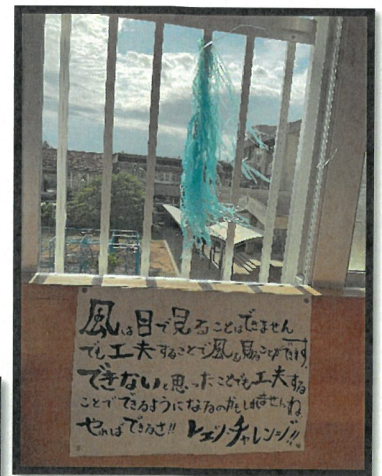 風は目で見ることはできません
でも工夫することで風も見ることができます。
できないと思ったことでも工夫する
ことでできるようになるのかもしれませんね
やればできるさ!! レッツ・チャレンジ!!